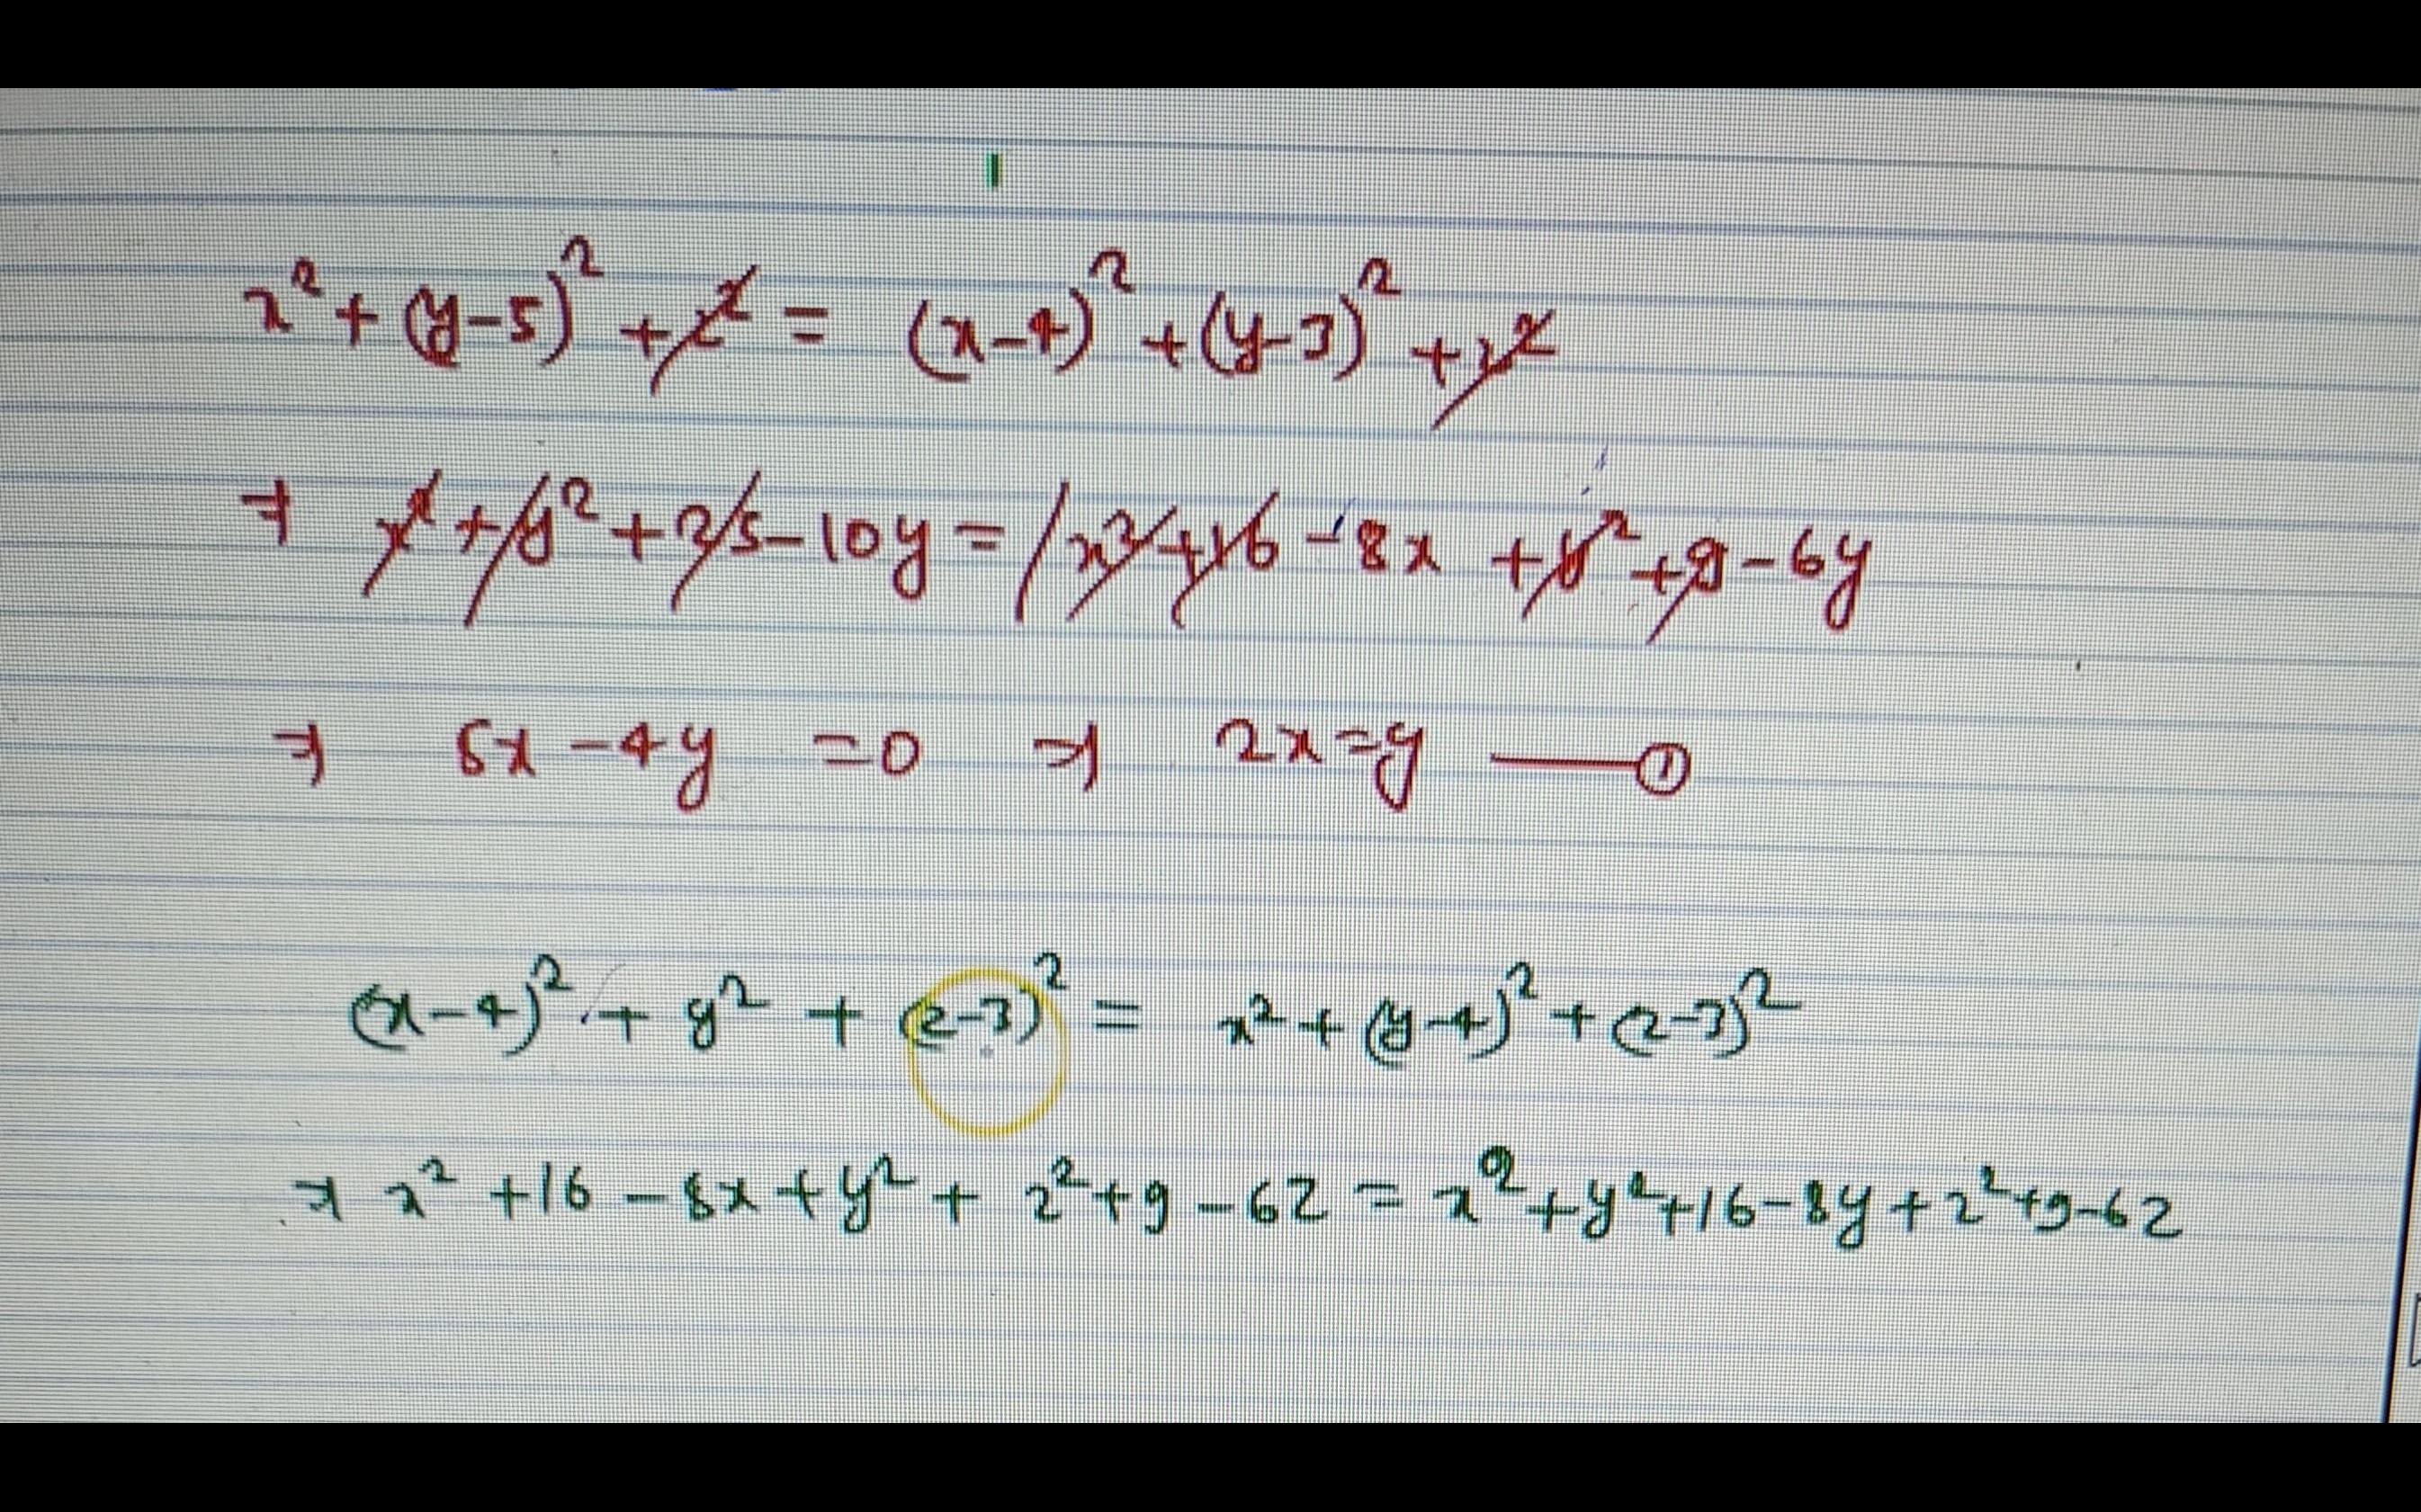 x² + (y-5)² + z² = (x-4)² + (y-3)² + z²
⇒ x² + y² + 25 - 10y = x² + 16 - 8x + y² + 9 - 6y
⇒ 8x - 4y = 0 ⇒ 2x = y —— ①
(x-4)² + y² + (z-3)² = x² + (y-4)² + (z-3)²
⇒ x² + 16 - 8x + y² + z² + 9 - 6z = x² + y² + 16 - 8y + z² + 9 - 6z